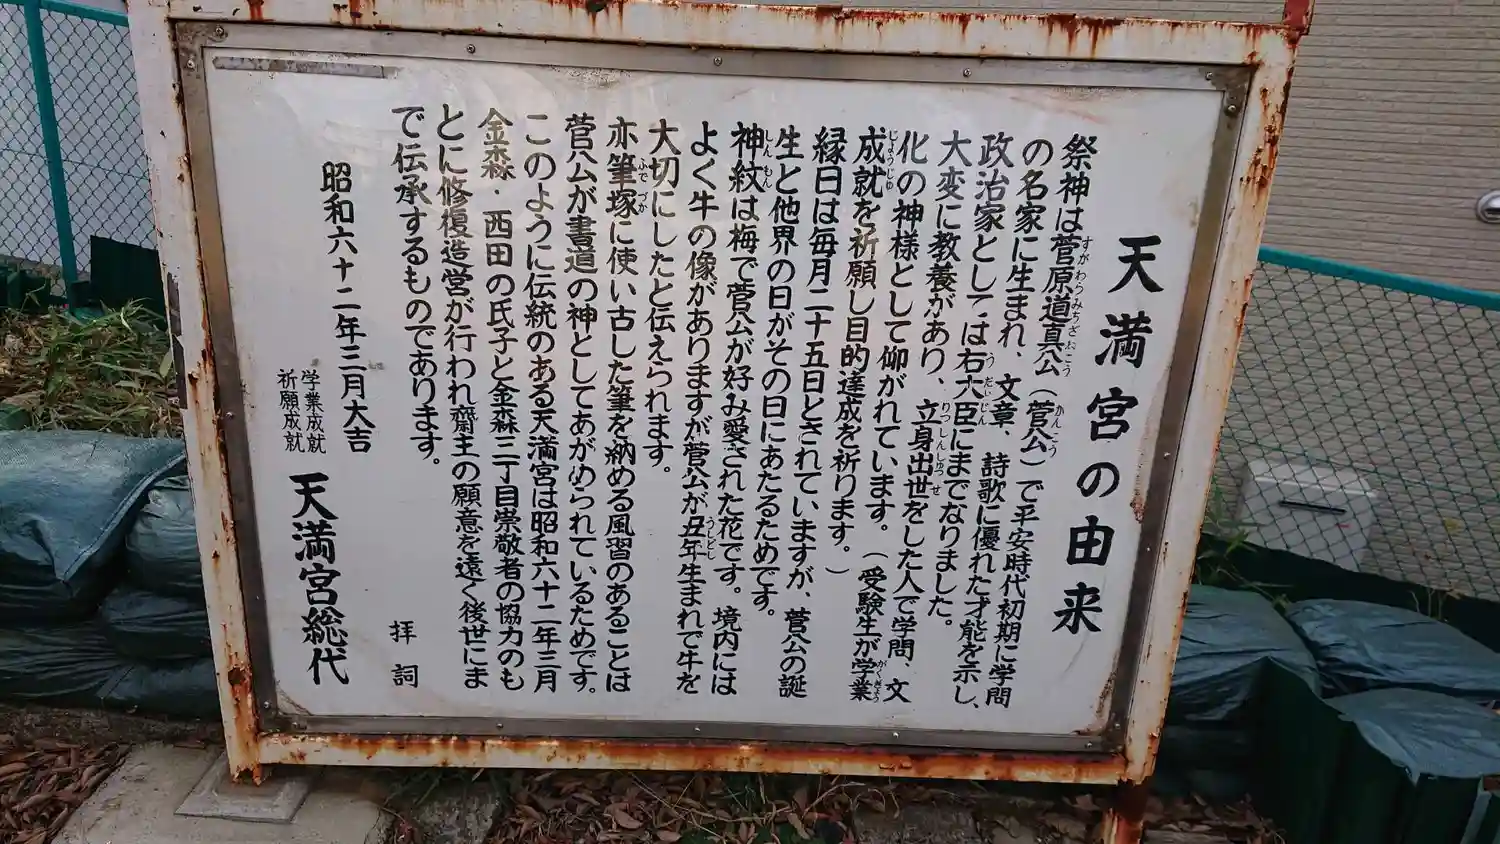 天満宮の由来
祭神は菅原道真公（菅公）で平安時代初期に学問
の名家に生まれ、文章、詩歌に優れた才能を示し、
政治家としては右大臣にまでなりました。
大変に教養があり、立身出世をした人で学問、文
化の神様として仰がれています。（受験生が学業
成就を祈願し目的達成を祈ります。）
縁日は毎月二十五日とされていますが、菅公の誕
生と他界の日がその日にあたるためです。
神紋は梅で菅公が好み愛された花です。境内には
よく牛の像がありますが菅公が丑年生まれで牛を
大切にしたと伝えられます。
亦筆塚に使い古した筆を納める風習のあることは
菅公が書道の神としてあがめられているためです。
このように伝統のある天満宮は昭和六十二年三月
金森・西田の氏子と金森三丁目崇敬者の協力のも
とに修復造営が行われ齋主の願意を遠く後世にま
で伝承するものであります。
拝詞
昭和六十二年三月大吉
学業成就
祈願成就
天満宮総代